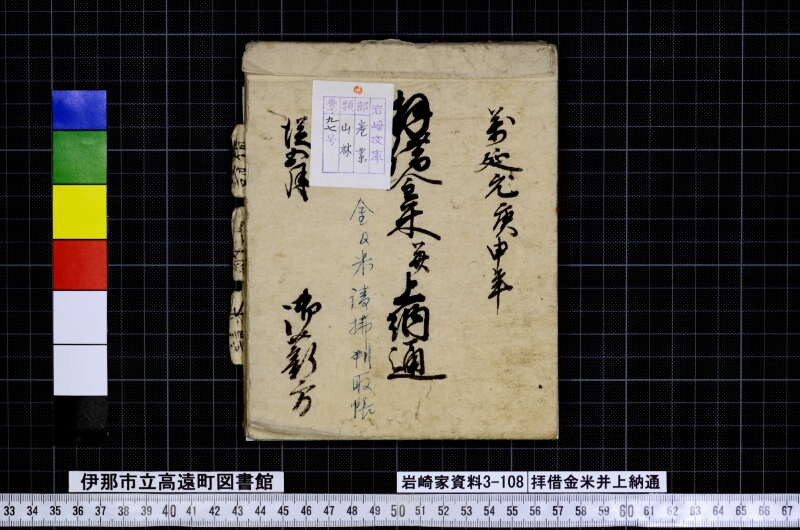 萬延元庚申年
拝借金米并上納通
従五月
御薪方
金及米請拂判取帳
岩崎文庫
部 巻 業
類 山林
九七号
伊那市立高遠町図書館
岩崎家資料3-108
拝借金米并上納通
33 34 35 36 37 38 39 40 41 42 43 44 45 46 47 48 49 50 51 52 53 54 55 56 57 58 59 60 61 62 63 64 65 66 67